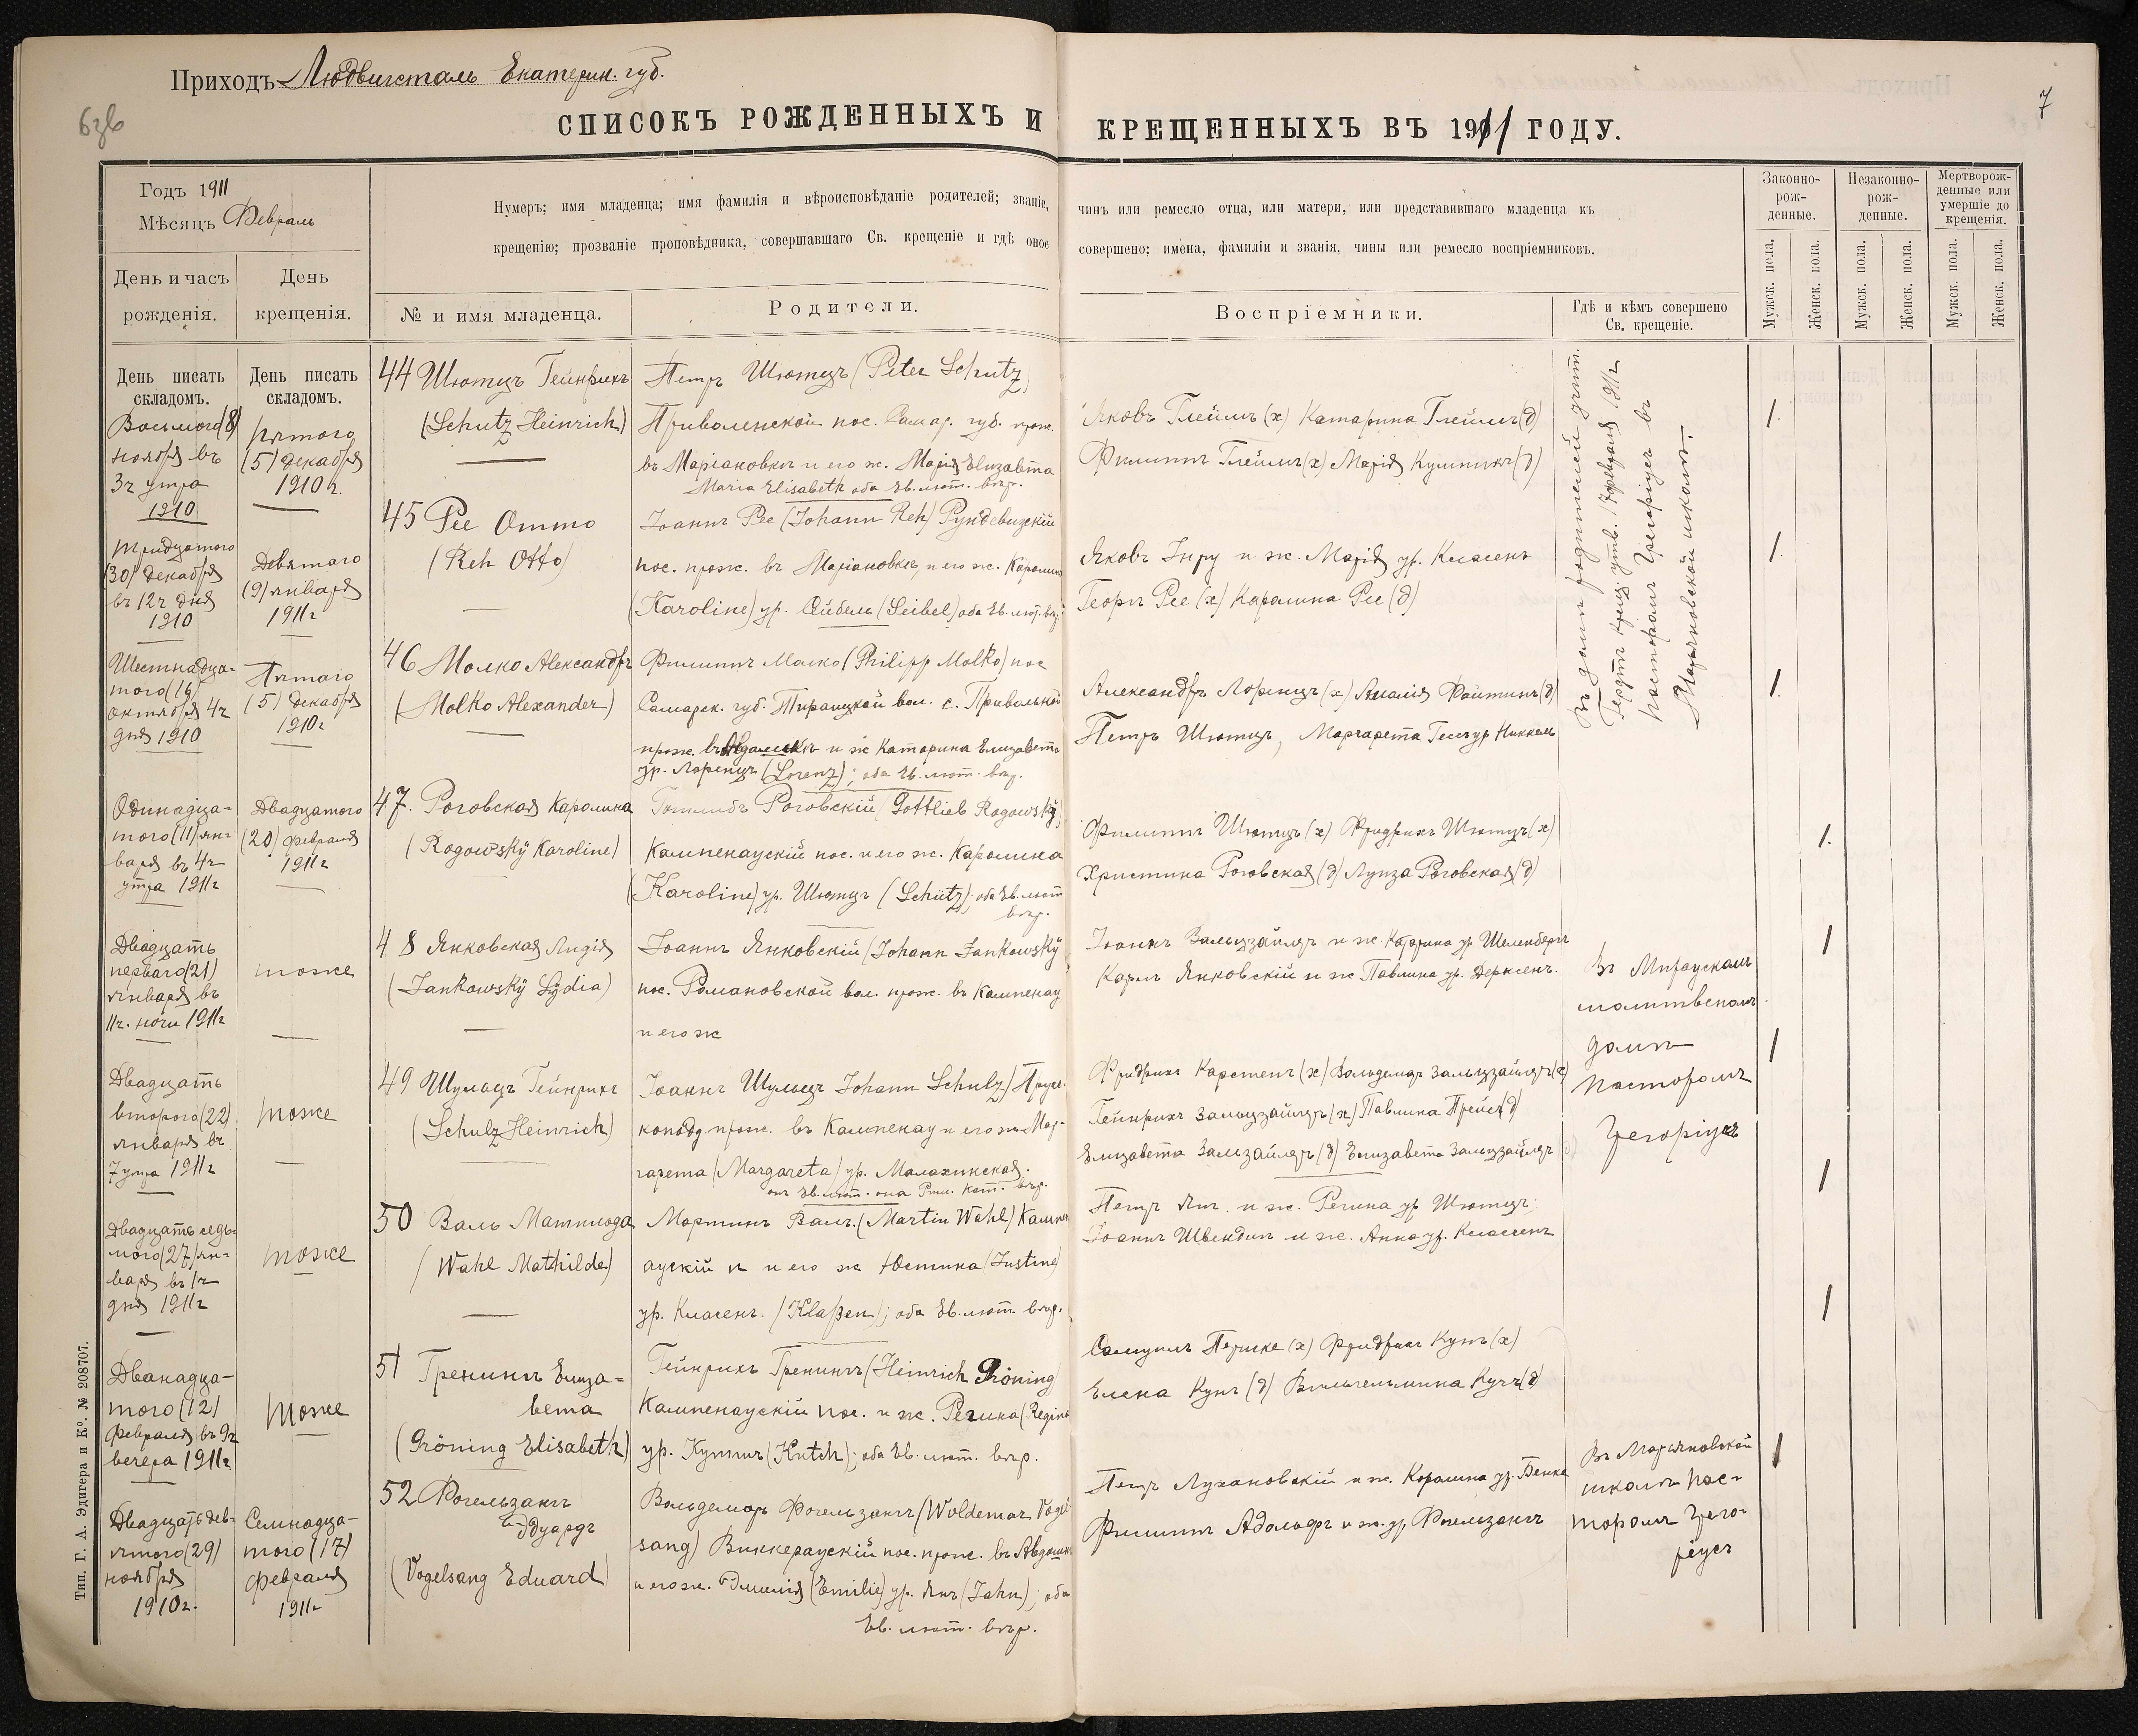 Приходъ Людвигсталь Екатерин. губ.
СПИСОКЪ РОЖДЕННЫХЪ И КРЕЩЕННЫХЪ ВЪ 1911 ГОДУ.
7
Годъ 1911
Мѣсяцъ Февраль
Нумеръ; имя младенца; имя фамилія и вѣроисповѣданіе родителей; званіе, чинъ или ремесло отца, или матери, или представившаго младенца къ
крещенію; прозваніе проповѣдника, совершавшаго Св. крещеніе и гдѣ оное совершено; имена, фамиліи и званія, чины или ремесло воспріемниковъ.
День и часъ
рожденія.
День
крещенія.
№ и имя младенца.
Родители.
Воспріемники.
Гдѣ и кѣмъ совершено
Св. крещеніе.
Законно-
рож-
денные.
Незаконно-
рож-
денные.
Мертворож-
денные или
умершіе до
крещенія.
Мужск. пола.
Женск. пола.
Мужск. пола.
Женск. пола.
Мужск. пола.
Женск. пола.
День писать
складомъ.
День писать
складомъ.
Восьмого (8)
ноября въ
3ч утра
1910
пятого
(5) декабря
1910 г.
44 Шютцъ Гейнрихъ
(Schutz Heinrich)
Петръ Шютцъ (Peter Schutz)
Привольнской пос. Самар. губ. прож.
въ Маріановкѣ и его ж. Марія Елизавета
Maria Elisabeth оба Ев. лют. вѣр.
Яковъ Глеймъ (х) Катарина Глеймъ (д)
Филиппъ Глеймъ (х) Марія (д)
Въ домѣ родителей
1911г
пасторомъ Грегоріусъ въ
Марьяновской школѣ.
1.
Тридцатого
(30) декабря
въ 12ч дня
1910
Девятаго
(9) января
1911г
45 Рее Отто
(Reh Otto)
Іоаннъ Рее (Johann Reh)
пос. прож. въ Маріановкѣ, и его ж. Каролина
(Karoline) ур. Сейбель (Seibel) оба Ев. лют. вѣр.
Яковъ и ж. Марія ур. Класенъ
Георгъ Рее (х) Каролина Рее (д)
1.
Шестнадца-
того (16)
октября 4ч
дня 1910
Пятаго
(5) декабря
1910г
46 Молко Александръ
(Molko Alexander)
Филиппъ Молко (Philipp Molko) пос
Самарск. губ. вол. с. Привольной
прож. въ и ж Катарина Елизавета
ур. Лоренцъ (Lorenz); оба Ев. лют. вѣр.
Александръ Лоренцъ (х) Амалія (д)
Петръ Шютцъ, Маргарета
1.
Одинадца-
того (11) ян-
варя въ 4ч
утра 1911г
Двадцатого
(20) февраля
1911г
47. Роговская Каролина
(Rogowský Karoline)
Готлибъ Роговскій (Gottlieb Rogowský)
Кампенаускій пос. и его ж. Каролина
(Karoline) ур. Шютцъ (Schütz); оба Ев. лют
вѣр.
Филиппъ Шютцъ (х) Фридрихъ Шютцъ (х)
Христина Роговская (д) Луиза Роговская (д)
1.
Двадцать
перваго (21)
января въ
11ч. ночи 1911г
тоже
48 Янковская Лидія
(Jankowský Lýdia)
Іоаннъ Янковскій (Johann Jankowský
пос. Романовской вол. прож. въ Кампенау
и его ж
Іоаннъ Зальцзайлеръ и ж. Катрина ур Шеленбергъ
Карлъ Янковскій и ж Павлина ур. Дерксенъ.
Въ Мираускомъ
молитвеномъ
домѣ
пасторомъ
Грегоріусъ
1
Двадцать
второго (22)
января въ
7 утра 1911г
тоже
49 Шульцъ Гейнрихъ
(Schulz Heinrich)
Іоаннъ Шульцъ Johann Schulz) Прус.
прож. въ Кампенау и его ж. Мар-
гарета (Margareta) ур. Малахинская.
онъ Ев. лют. она Рим. Кат. вѣр.
Фридрихъ Карстенъ (х) Вольдемаръ Зальцзайлеръ (х)
Гейнрихъ Зальцзайлеръ (х) Павлина (д)
Елизавета Зальцзайлеръ (д) Елизавета Зальцзайлеръ (д)
1
Двадцать седь-
мого (27) ян-
варя въ 1ч
дня 1911г
тоже
50 Валь Матильда
(Wahl Mathilde)
Мартинъ Валь (Martin Wahl) Кампен
аускій п и его ж Юстина (Justine)
ур. Класенъ. (Klaßen); оба Ев. лют. вѣр.
Петръ Янъ и ж. Регина ур Шютцъ
Іоаннъ и ж. Анна ур. Класенъ
1
Дванадца-
того (12)
февраля въ 9ч
вечера 1911г
тоже
51 Гренингъ Елиза-
вета
(Gröning Elisabeth)
Гейнрихъ Гренингъ (Heinrich Gröning)
Кампенаускій пос. и ж. Регина (Regina
ур. Кутчъ (Kutch); оба Ев. лют. вѣр.
Самуилъ (х) Фридрихъ (х)
Елена (д) Вильгельмина (д)
1
Двадцать дев-
ятого (29)
ноября
1910г.
Семнадца-
того (17)
февраля
1911г
52 Фогельзангъ
Эдуардъ
(Vogelsang Eduard)
Вольдемаръ Фогельзангъ (Woldemar Vogel
sang) Виккераускій пос. прож. въ
и его ж. Эмилія (Emilie) ур. Янъ (Jahn); оба
Ев. лют. вѣр.
Петръ и ж. Каролина ур.
Филиппъ Адольфъ и ж. ур. Фогельзангъ
Въ Марьяновской
школѣ пас-
торомъ Грего-
ріусъ
1
Тип. Г. А. Эдигера и К°. № 208707.